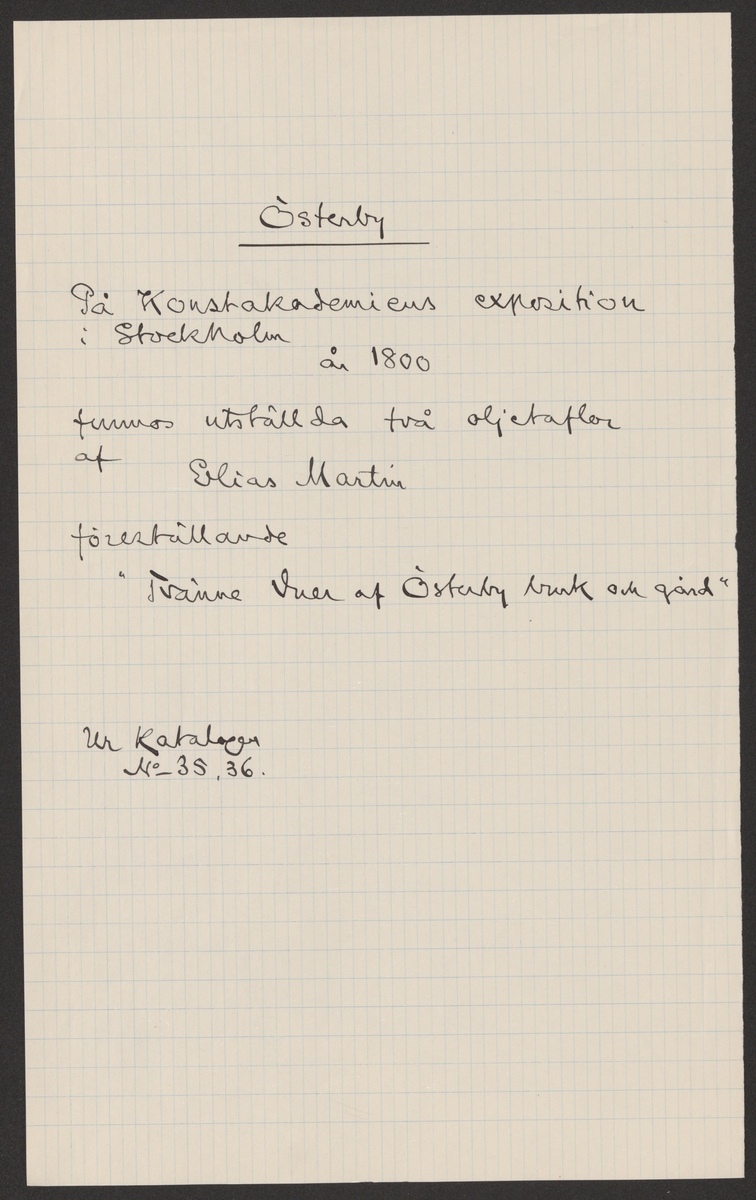 Österby
På Konstakademiens exposition
i Stockholm
år 1800
funnos utställda två oljetaflor
af
Elias Martin
föreställande
"Tvänne Vuer af Österby bruk och gård"
Ur Katalogen
No 35, 36.